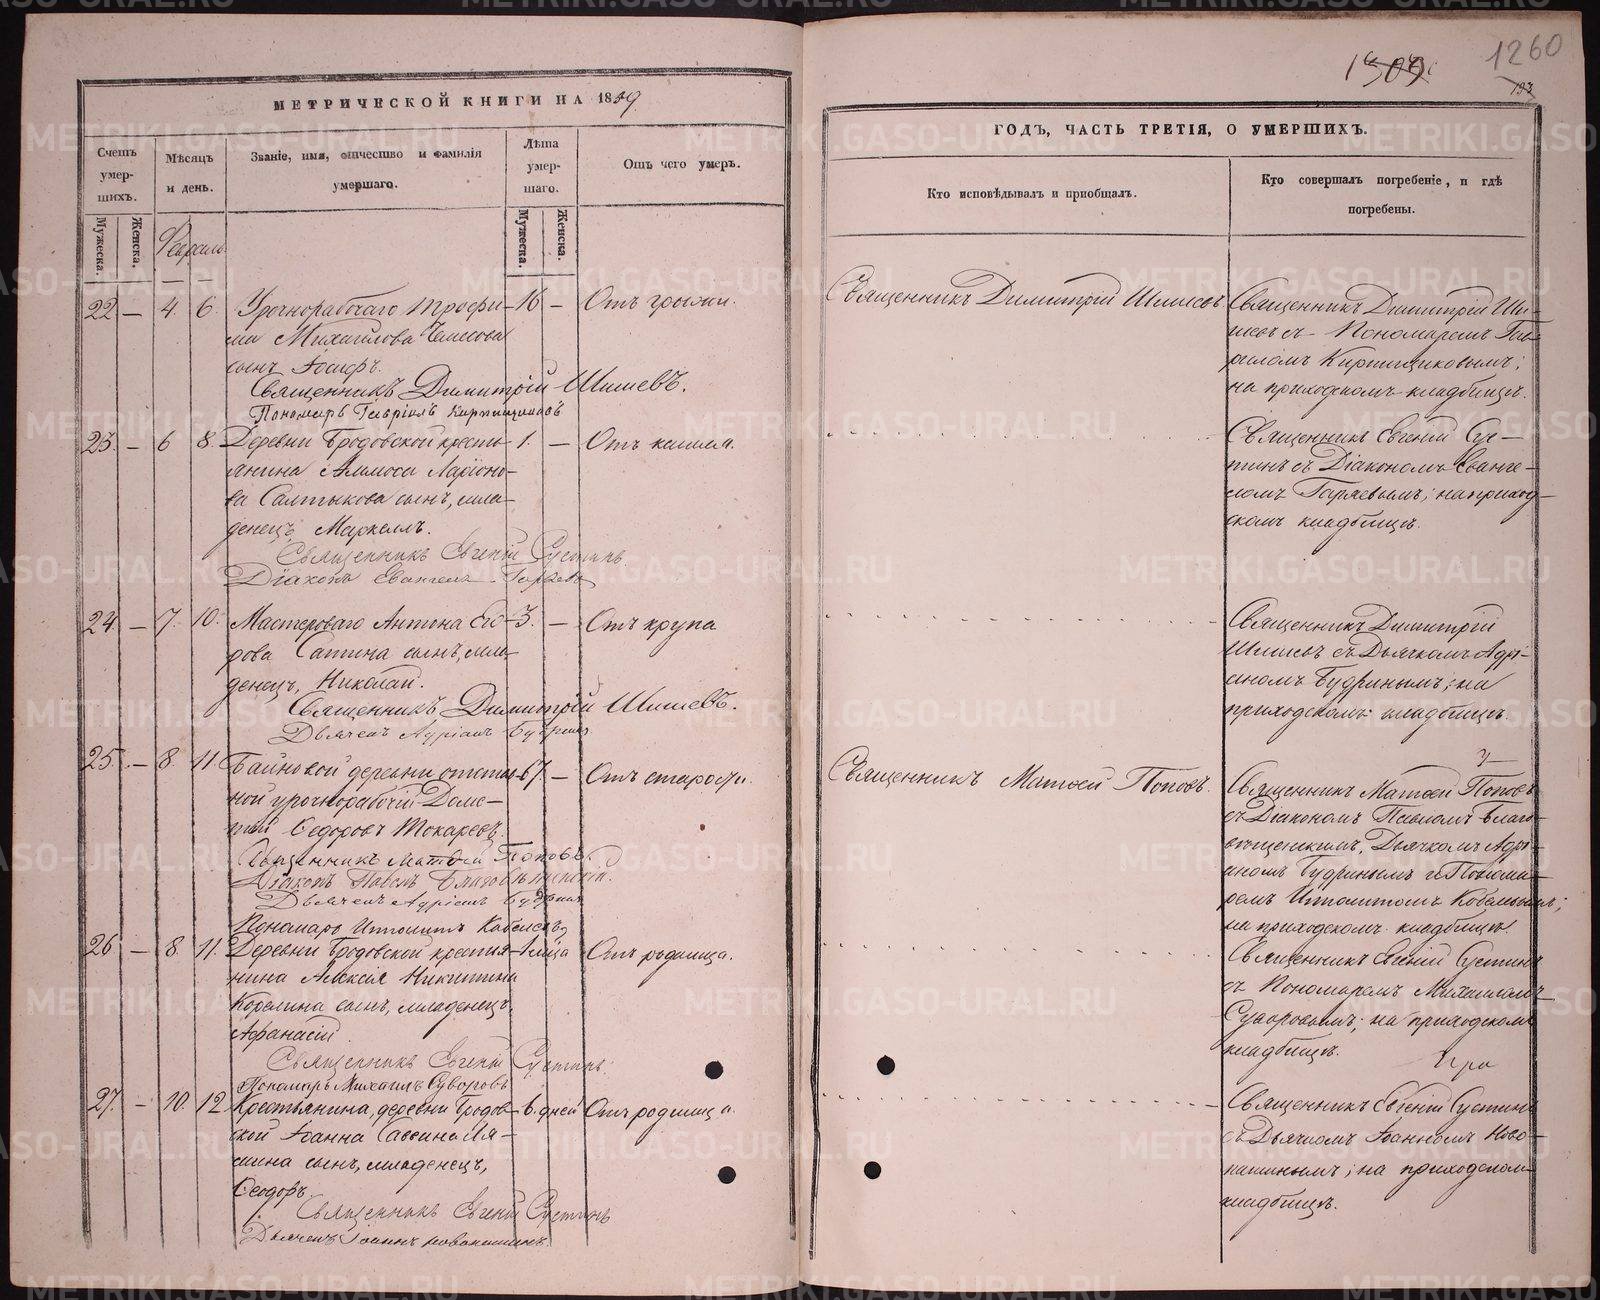 МЕТРИЧЕСКОЙ КНИГИ НА 1859
Счетъ умер-шихъ.
Мѣсяцъ и день.
Званіе, имя, отчество и фамилія умершаго.
Лѣта умер-шаго.
Отъ чего умеръ.
Мужеска.
Женска.
Мужеска.
Женска.
Февраль
22 — 4. 6. Урочнорабочаго Трофи- 16 — Отъ грыжи.
ма Михайлова
сынъ Іосифъ.
Священникъ Димитрій Шишевъ.
Пономарь Гавріилъ Кирпищиковъ
23. — 6 8. Деревни Бродовской кресть- 1. — Отъ кашля.
янина Аммоса Ларіоно-
ва Салтыкова сынъ, мла-
денецъ, Маркеллъ.
Священникъ Евгеній Сустинъ
Діаконъ Евангелъ Гаряевъ
24. — 7. 10. Мастероваго Антона Его- 3. — Отъ крупа
рова Сатина сынъ, мла-
денецъ, Николай.
Священникъ Димитрій Шишевъ.
Дьячекъ Адріанъ Будринъ
25. — 8. 11. Байновой деревни отстав- 67. — Отъ старости.
ной урочнорабочій Доме-
тій Ѳедоровъ Токаревъ.
Священникъ Матѳей Поповъ.
Діаконъ Павелъ Благовѣщенскій.
Дьячекъ Адріанъ Будринъ
Пономарь Ипполитъ
26 — 8. 11. Деревни Бродовской крестья- 1 мѣсяца Отъ родимца.
нина Алексія Никитина
Корелина сынъ, младенецъ,
Афанасій
Священникъ Евгеній Сустинъ.
Пономарь Михаилъ Суворовъ
27. — 10. 12 Крестьянина, деревни Бродов- 6. дней Отъ родимца.
ской Іоанна Саввина
сынъ, младенецъ,
Ѳеодоръ.
Священникъ Евгеній Сустинъ
Дьячекъ Іоаннъ Новопашинъ.
1260
193
ГОДЪ, ЧАСТЬ ТРЕТІЯ, О УМЕРШИХЪ.
Кто исповѣдывалъ и пріобщалъ.
Кто совершалъ погребеніе, и гдѣ погребены.
Священникъ Димитрій Шишевъ
Священникъ Димитрій Ши-
шевъ съ Пономаремъ Гав-
риломъ Кирпищиковымъ;
на приходскомъ кладбищѣ.
Священникъ Евгеній Сус-
тинъ съ Діакономъ Еванге-
ломъ Гаряевымъ; на приход-
скомъ кладбищѣ.
Священникъ Димитрій
Шишевъ съ Дьячкомъ Адрі-
аномъ Будринымъ; на
приходскомъ кладбищѣ.
Священникъ Матѳей Поповъ.
Священникъ Матѳей Поповъ
съ Діакономъ Павломъ Благо-
вѣщенскимъ, Дьячкомъ Адрі-
аномъ Будринымъ и Понома-
ремъ Ипполитомъ
на приходскомъ кладбищѣ.
Священникъ Евгеній Сустинъ
съ Пономаремъ Михаиломъ
Суворовымъ; на приходскомъ
кладбищѣ.
Священникъ Евгеній Сустинъ
съ Дьячкомъ Іоанномъ Ново-
пашинымъ; на приходскомъ
кладбищѣ.
METRIKI.GASO-URAL.RU